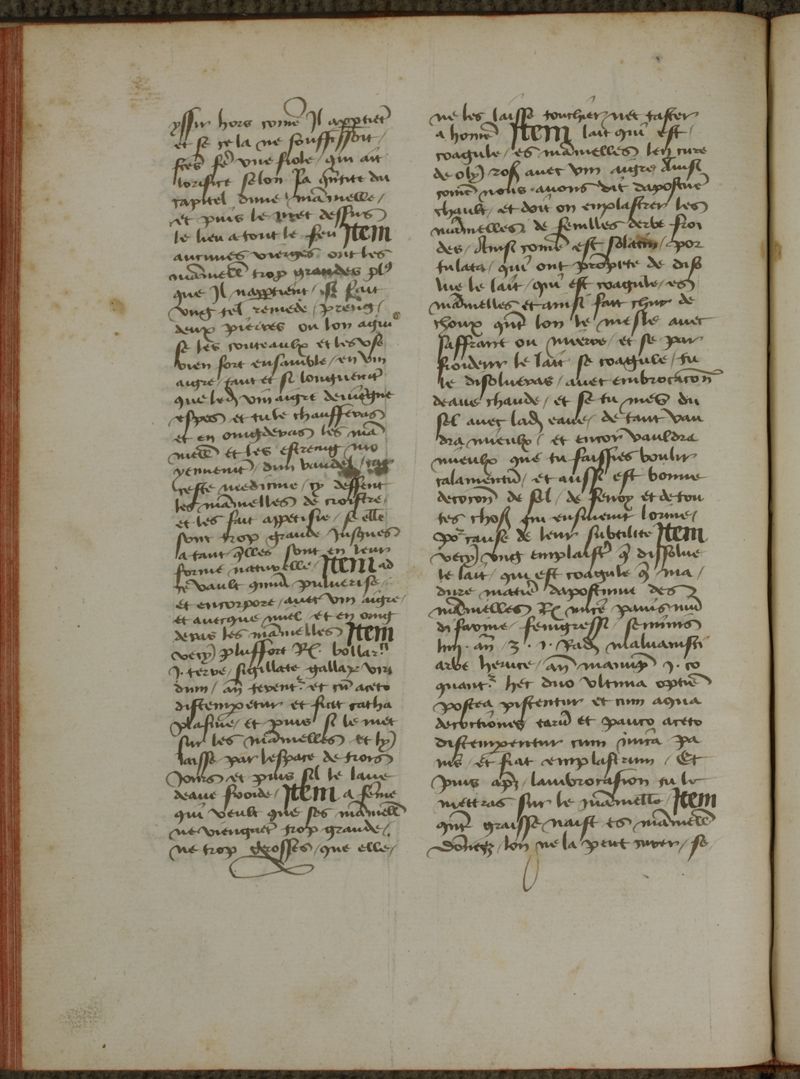 yssir hors come Il apptiet
et se cela ne souffissoit /
fces fe vne fiole / qui ait
lorifice selon la qntite du
capitel dune mamelle /
et puis le met dessus
le lieu a tout le feu Item
aucunes vierges ont les
mamell trop grandes pl9
que Il napptient / Il fault
vng tel remede / preng /
deux pierres ou lon agui
se les couteaulx et les vse
bien fort ensamble / en vin
aigre tant et si longuemt
que led vin aigre deuiegne
espes et tu le chaufferas
et en oingderas les ma
mell et les estraing mo
yennemt dun bandel / car
ceste medicine / cy deffent
les mamelles de croistre /
et les fait appetisie / se elle
sont trop grande Jusques
a tant qlles sont en leur
forme naturelle / Item ad
ce vault puluerise
et encorpore / auec vin aigre /
et auecque miel et en oing
deras les mamelles Item
vecy plussort Rx bollar
j. terre / sigillate gallar viri
dum / an et cu aceto
distempetur et fiat catha
plasme / et puis si le met
sur les mamelles et ly
laisse par lespace de trois
Jours et puis sil le laue
deaue froide / Item a feme
qui veult que ses mamell
ne viengnet trop grande /
ne trop grosses / que elle /
ne les laisse touchier net taster
a home Item lait qui est /
coagule / es mamelles len cure
de oly ros auec vin aigre Ainsi
come nous auons dit dapostue
chault / et doit on emplastrer les
mamelles de feuilles derbe froi
des / Ainsi come est solatru / por
tulaca / qui ont proprite de diss
lue le lait / qui est coagule / es
mamelles et ainsi fait chu de
choux qnt lon le mesle auec
saffrant ou mierre / et se par
froideur le lait se coagule / tu
le dissolueras / auec embrocacon
deaue chaude / et se tu mes du
sel auec lad eaue / de tant vau
dra mieulx / et encor vauldra
mieulx que tu faisses boulir
calamentu / et aussi est bonne
decocon de sel / de fenoy et de tou
tes chos qui ensuiuent lorine /
por cause de leur subtilite Item
vecy vng emplastr q dissolue
le lait / qui est coagule q ma /
dure matie dapostume des
mamelles Rx mice panis mu
di farine / fenigreci seminis
lini . an . ʒ . j . Rad maluauisci
arbe heruce / an manip j . co
quant hec duo vltima optie
postea pistentur et cum aqua
decoctiones earu et pauco aceto
distempentur cum mica pa
nis / et fiat emplastrum / Et
puis apz / lambrocasion tu le
metteras sur le mamelle / Item
qnt graisse naist es mamell
donez / lon ne la peut curer / se